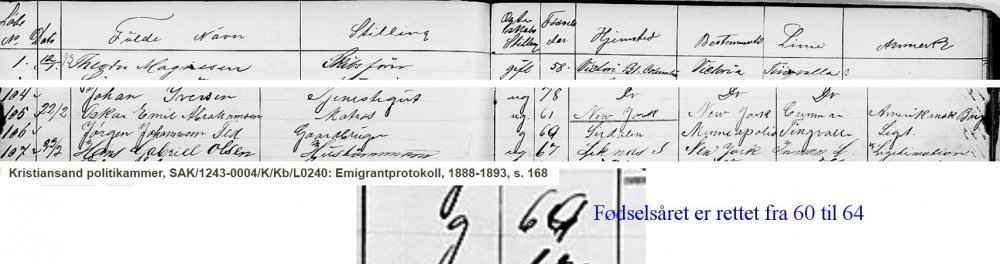 Løbe No. Dato Fulde Navn Stilling Ægte skabs Stilling Fødsels aar Hjemsted Bestemmelse Linie Anmerk
1. Theodor Magnesen Skibsfører gift 58. Victoria Bt. Columbia Victoria Tingvalla
104 Johan Iversen Tjenestegut ug 78 Do Do
105 22/2 Oskar Emil Abrahamsen Matros ug 61 New York New York Cunnar Amerikansk
106 Jørgen Johannesen Ted Gaardbruger g 64 Sirdalen Minneapolis Tingvalla Ligt.
107 22/2 Hans Gabriel Olsen Husmann ug 67 New York Inman L. Legitimation
Kristiansand politikammer, SAK/1243-0004/K/Kb/L0240: Emigrantprotokoll, 1888-1893, s. 168
g 64 Fødselsåret er rettet fra 60 til 64